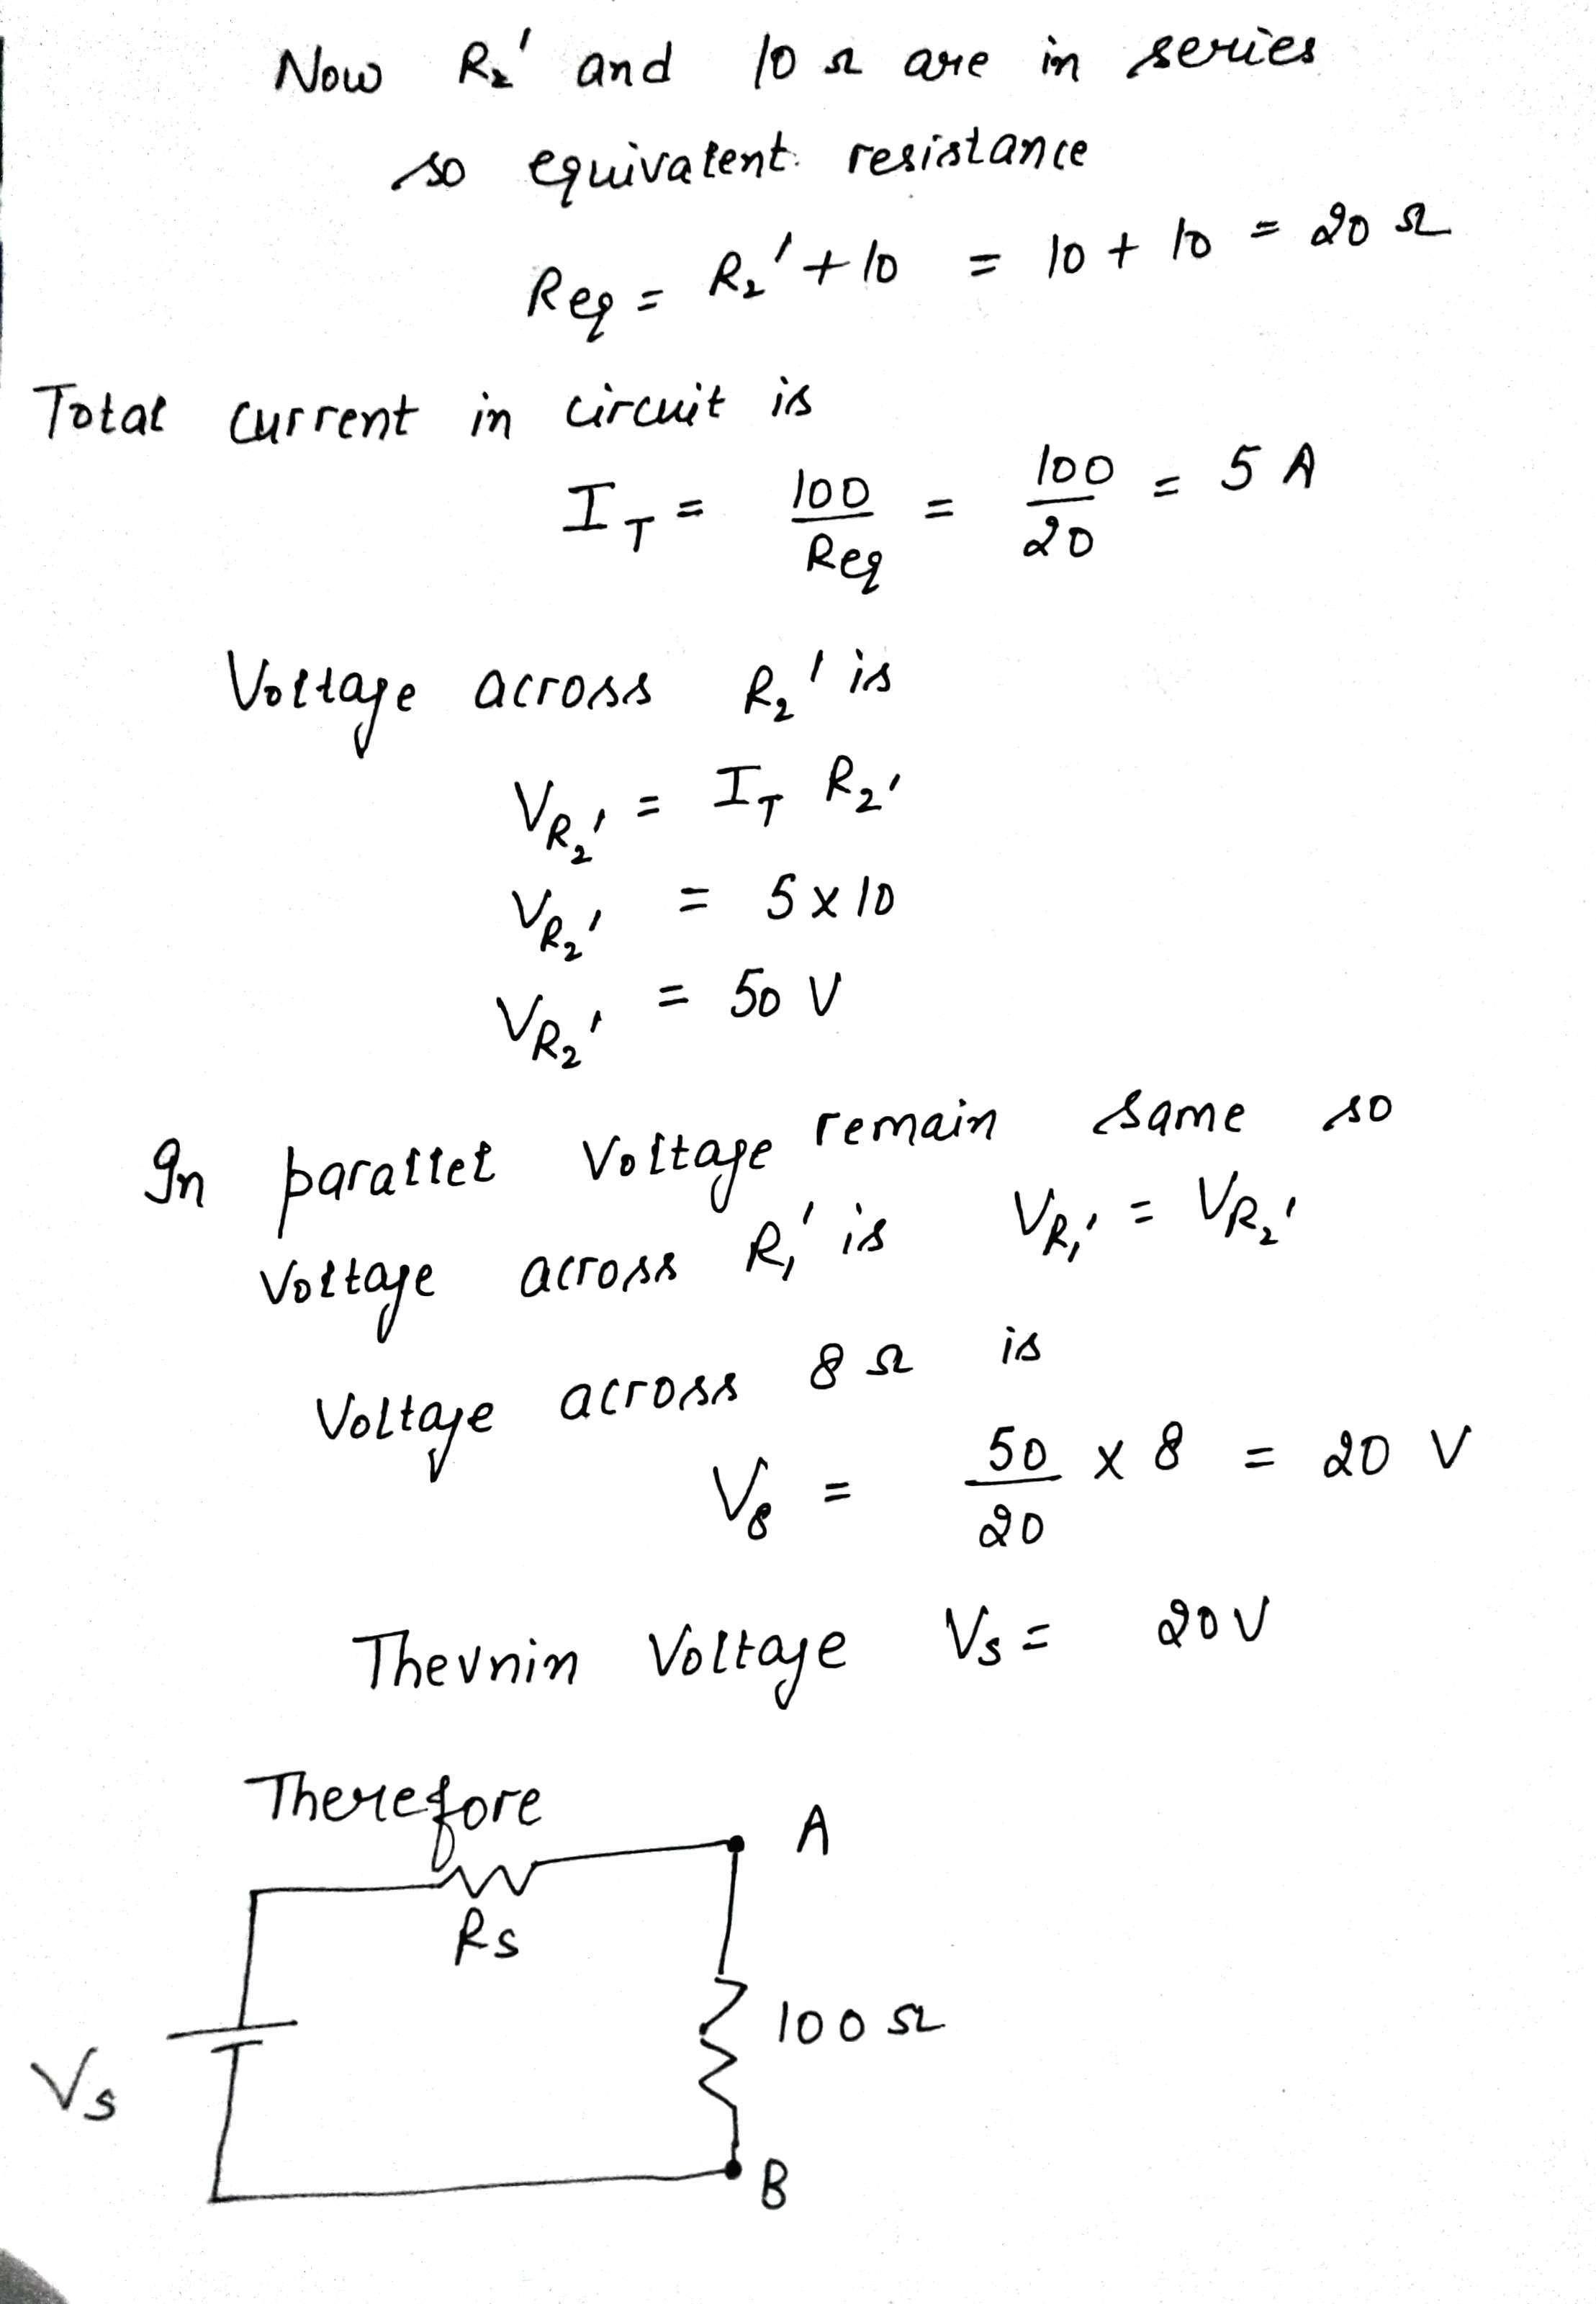 Now R₂' and 10 Ω are in series
so equivalent. resistance
Req = R₂' + 10 = 10 + 10 = 20 Ω
Total current in circuit is
I_T = 100/Req = 100/20 = 5 A
Voltage across R₂' is
V_R₂' = I_T R₂'
V_R₂' = 5 x 10
V_R₂' = 50 V
In parallel Voltage remain same so
Voltage across R₁' is V_R₁' = V_R₂'
Voltage across 8 Ω is
V₈ = 50/20 x 8 = 20 V
Thevnin Voltage Vs = 20V
Therefore
A
Rs
100 Ω
Vs
B